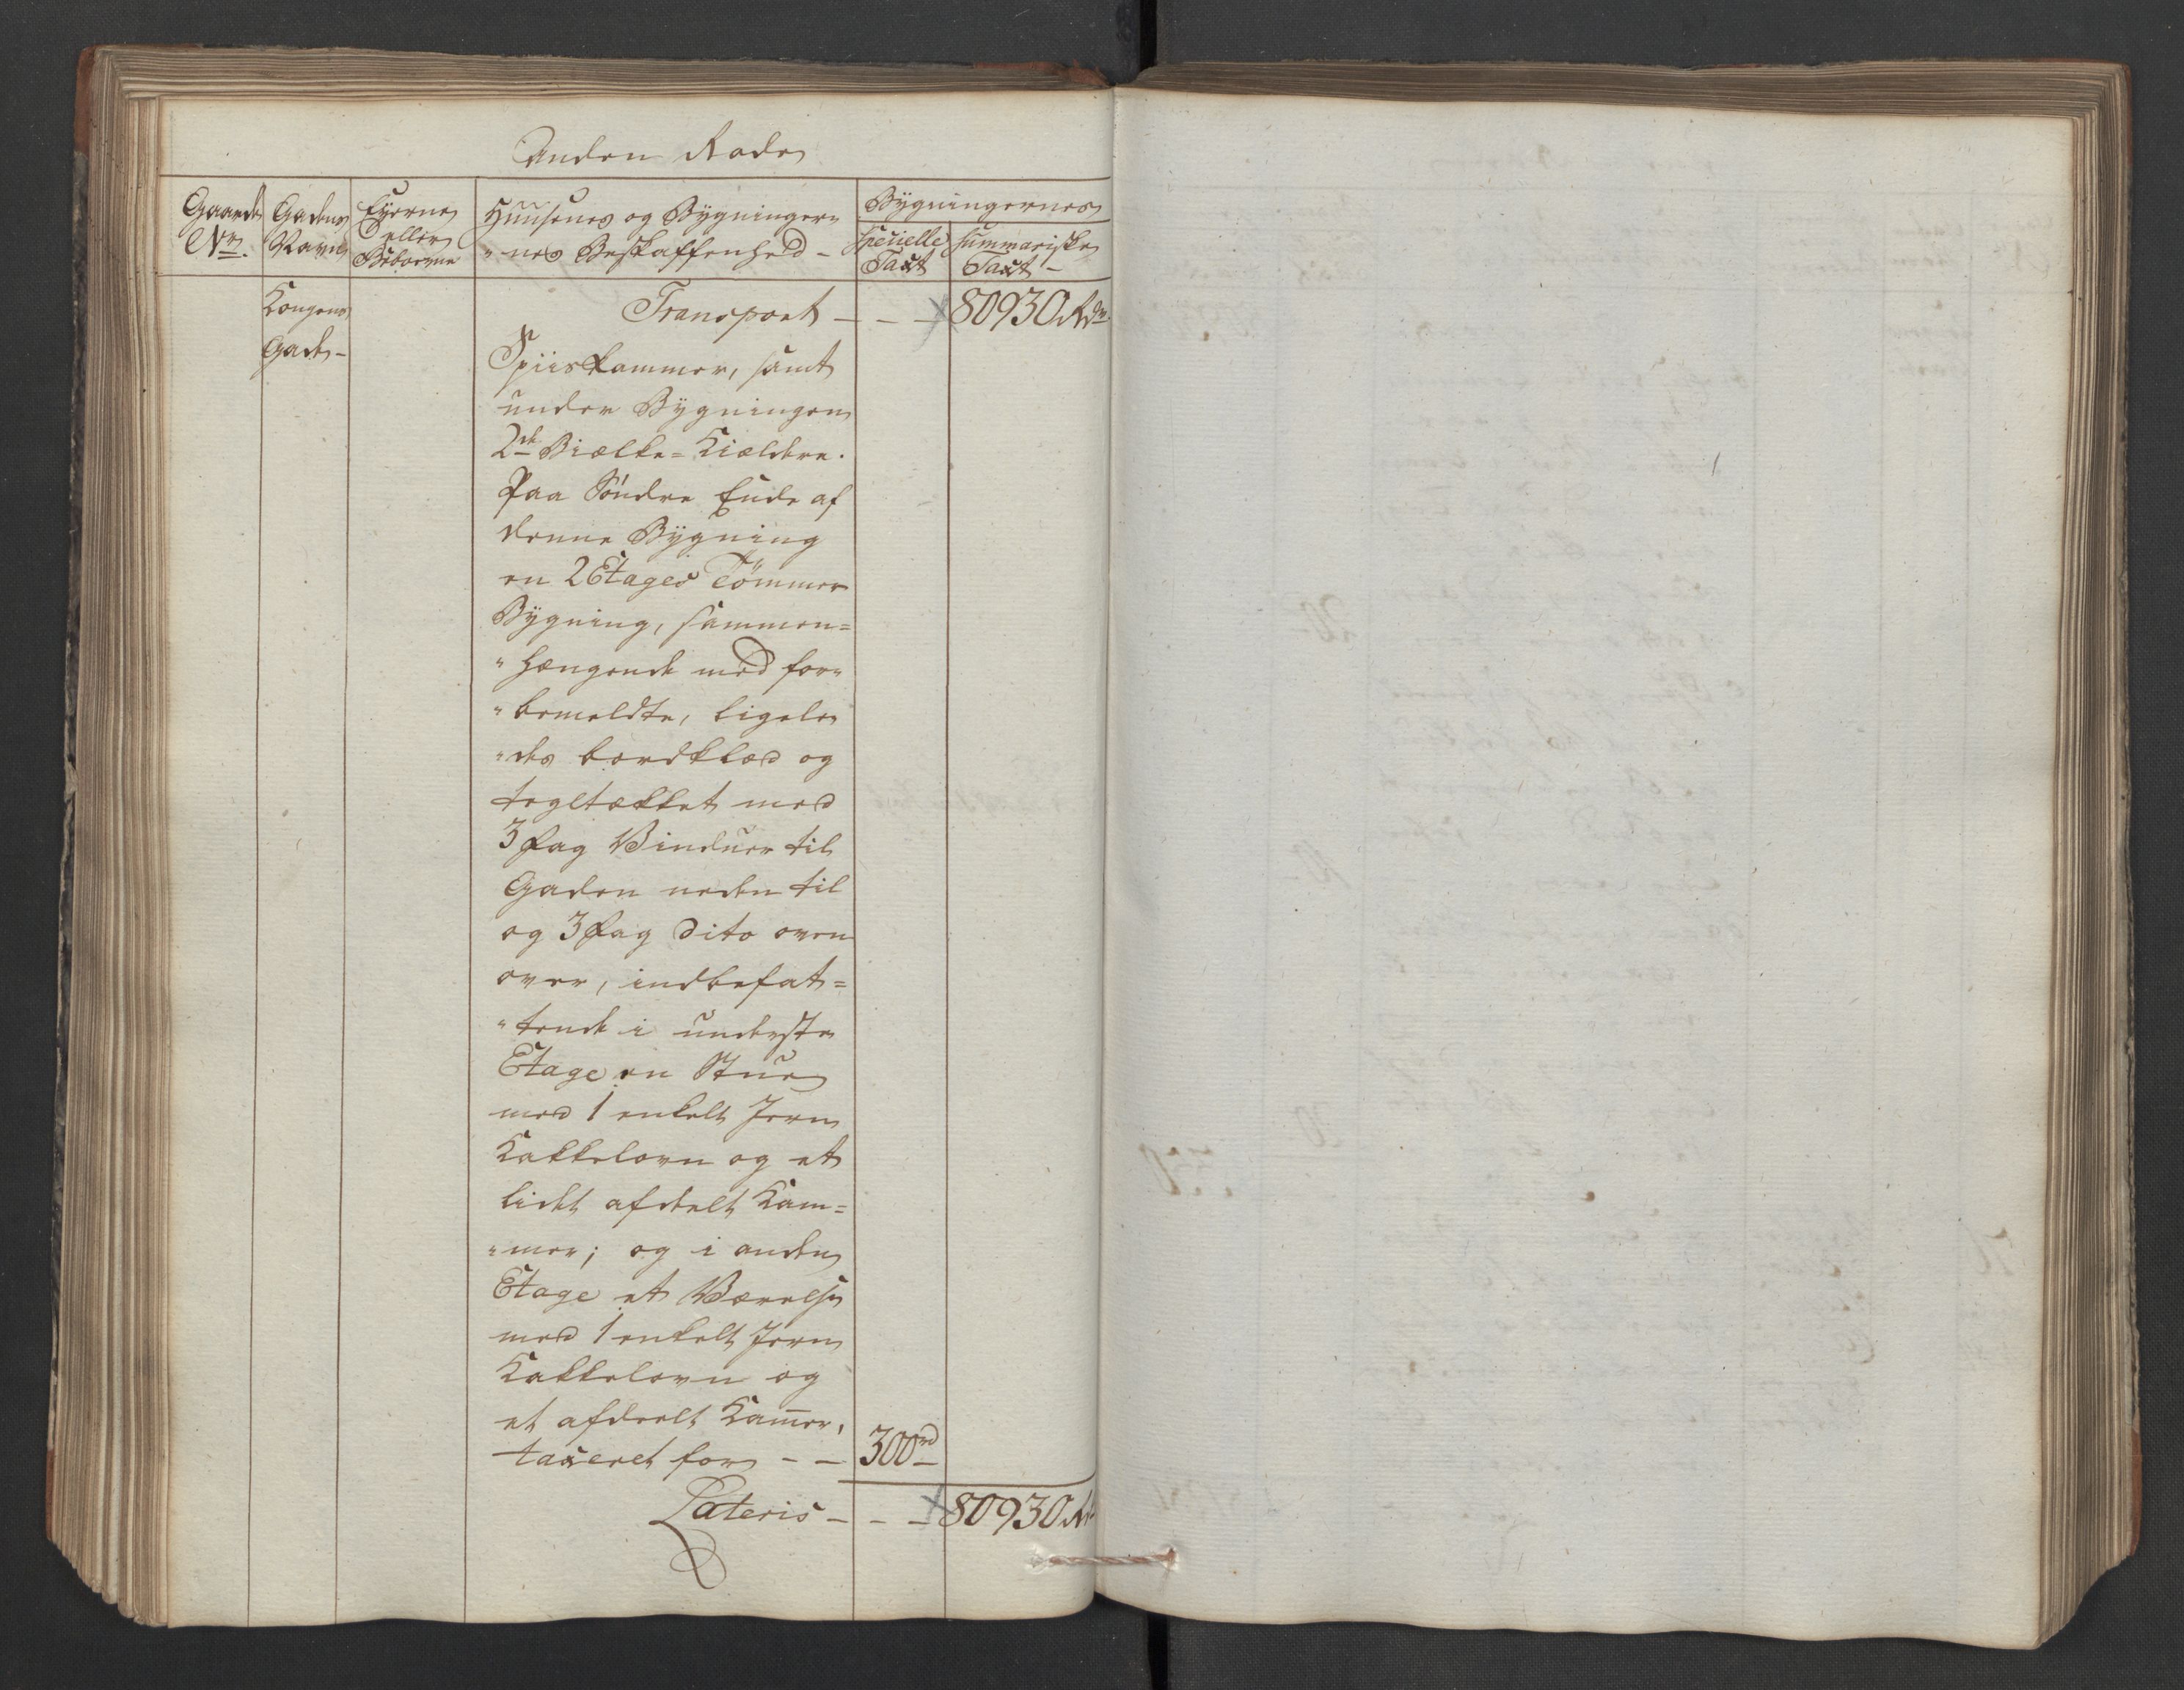 Anden Rode
Gaarde Gadens Eyerne Huusenes og Bygninger„ Bygningernes
Nr. Navn eller „nes Beskaffenhed - specielle summariske
Beboerne Taxt Taxt -
Kongens Transport - - - 80930 Rdr.
Gade -
Spiiskammer, samt
under Bygningen
2de Biælke= Kieldere.
Paa Søndre Ende af
denne Bygning
en 2 Etages Tømmer
Bygning, sammen=
„hængende med for„
„bemeldte, ligele„
„des bordklæd og
tegltækket med
3 Fag Vinduer til
Gaden neden til
og 3 Fag dito oven
over, indbefat=
„tende i underste
Etage en Stue
med 1 enkelt Jern
Kakkelovn og et
lidet afdeelt Kam=
„mer; og i anden
Etage et Værelse
med 1 enkelt Jern
Kakkelovn og
et afdeelt Kam̄er,
taxeret for - - 300rd
Lateris - - - 80930 Rd